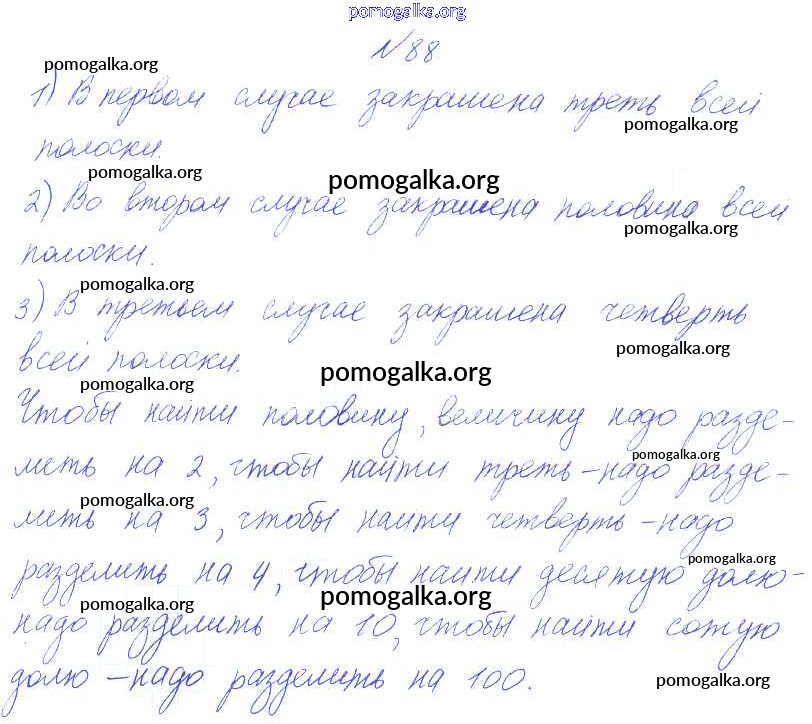 pomogalka.org
№88.
pomogalka.org
1) В первом случае закрашена треть всей
pomogalka.org
полоски.
pomogalka.org
pomogalka.org
2) Во втором случае закрашена половина всей
pomogalka.org
полоски.
pomogalka.org
3) В третьем случае закрашена четверть
pomogalka.org
всей полоски.
pomogalka.org
pomogalka.org
Чтобы найти половину, величину надо разде-
pomogalka.org
лить на 2, чтобы найти треть - надо разде-
pomogalka.org
лить на 3, чтобы найти четверть - надо
pomogalka.org
разделить на 4, чтобы найти десятую долю -
pomogalka.org
pomogalka.org
надо разделить на 10, чтобы найти сотую
долю - надо разделить на 100.
pomogalka.org